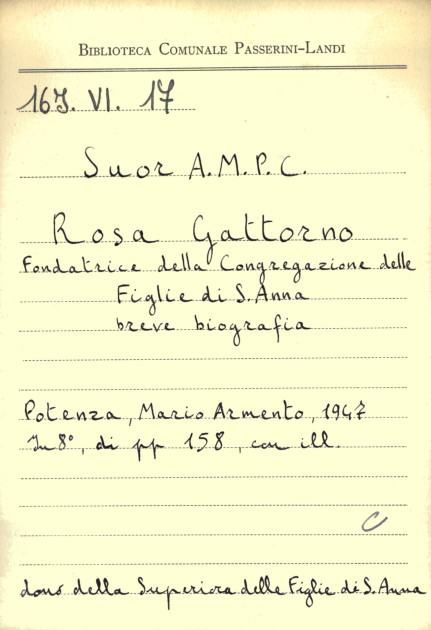 BIBLIOTECA COMUNALE PASSERINI-LANDI
16J. VI. 17
Suor A.M.P.C.
Rosa Gattorno
Fondatrice della Congregazione delle
Figlie di S. Anna
breve biografia
Potenza, Mario Armento, 1947
In 8°, di pp 158, con ill.
C
dono della Superiora delle Figlie di S. Anna